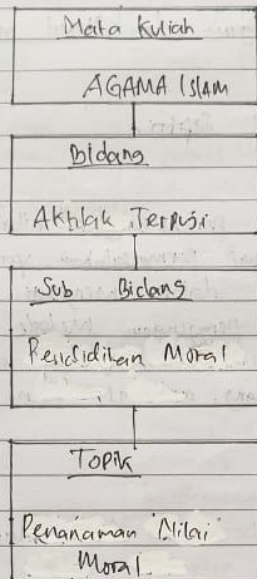 Mata Kuliah
AGAMA ISlAM
Bidang
Akhlak Terpuji
Sub Bidang
Pendidikan Moral
Topik
Penanaman Nilai
Moral